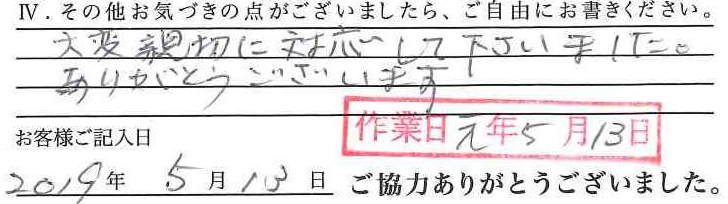 Ⅳ．その他お気づきの点がございましたら、ご自由にお書きください。
大変親切に対応して下さいました。
ありがとうございます
作業日元年5月13日
お客様ご記入日
2019年 5月13日 ご協力ありがとうございました。